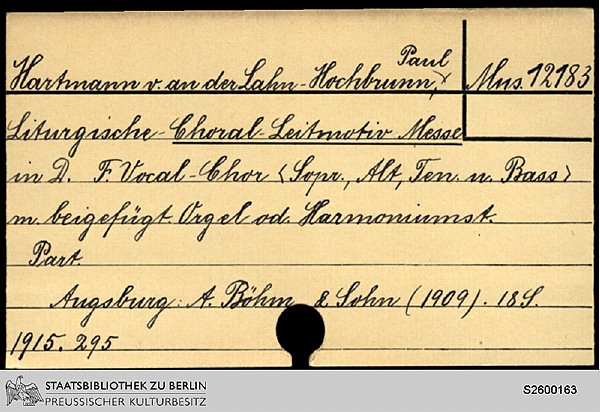 Paul
Hartmann v. an der Lahn-Hochbrunn, Mus. 12183
Liturgische-Choral-Leitmotiv Messe
in D. F. Vocal-Chor <Sopr., Alt, Ten. u. Bass>
m. beigefügt. Orgel od. Harmoniumst.
Part.
Augsburg: A. Böhm & Sohn (1909). 18 S.
1915. 295
STAATSBIBLIOTHEK ZU BERLIN
PREUSSISCHER KULTURBESITZ
S2600163